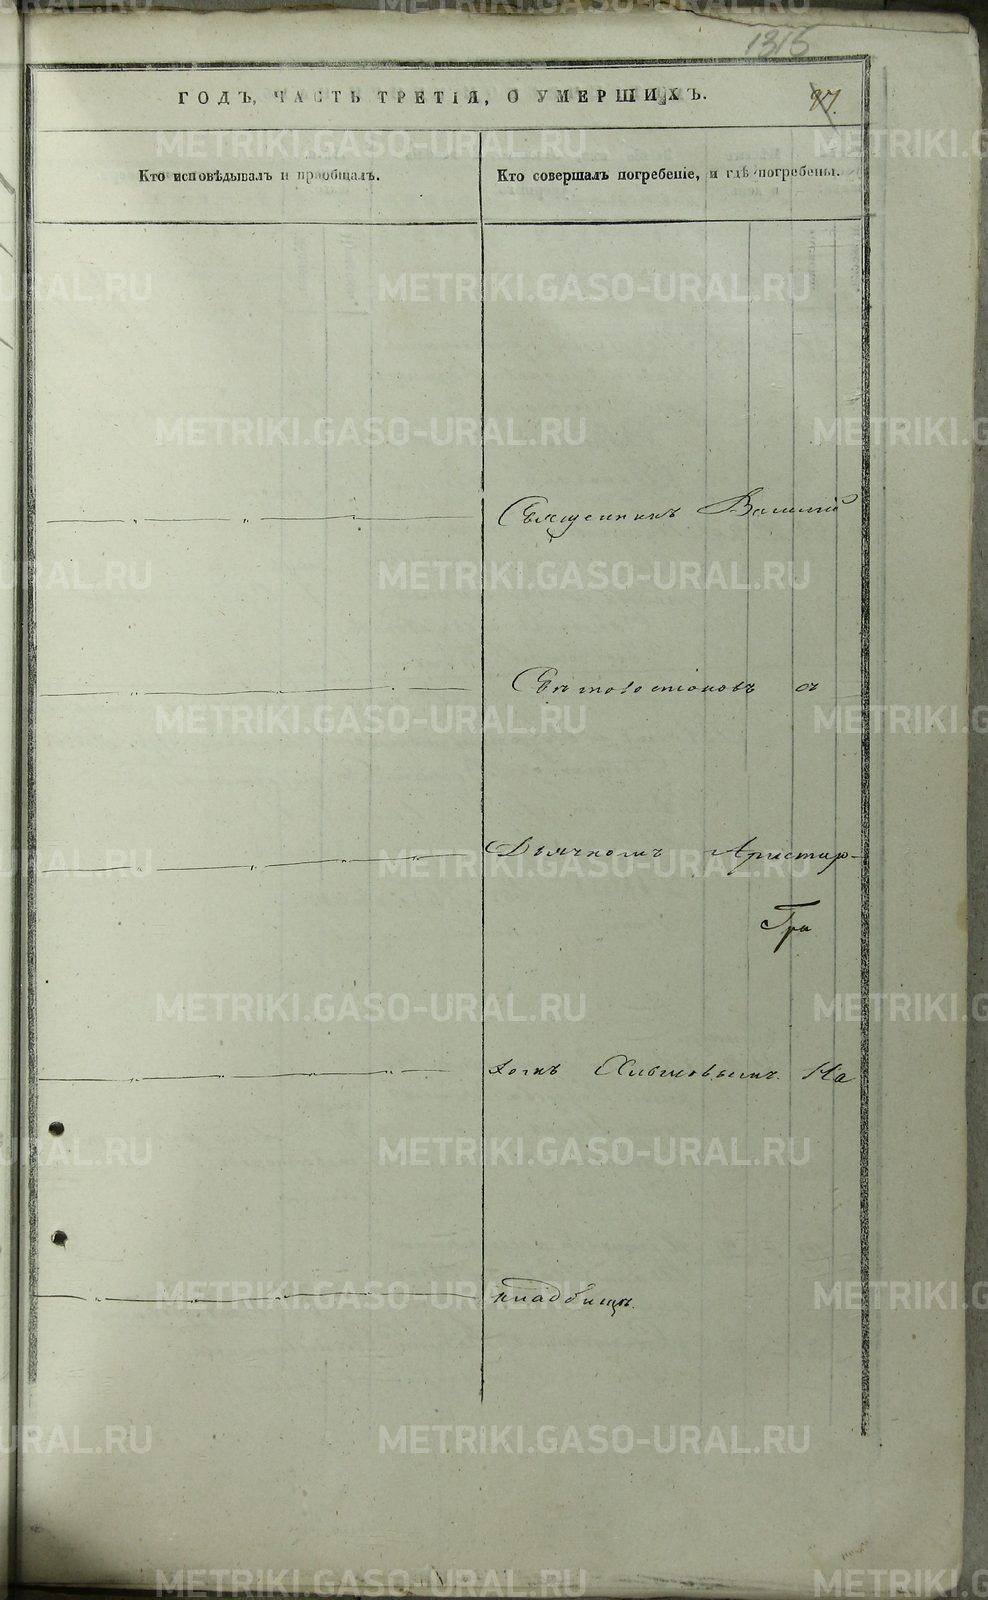 1315
ГОДЪ, ЧАСТЬ ТРЕТІЯ, О УМЕРШИХЪ.
97.
Кто исповѣдывалъ и пріобщалъ.
Кто совершалъ погребеніе, и гдѣ погребены.
Священникъ Василій
съ
Дьячкомъ Аристар-
Гри
хомъ Хлѣбовымъ. На
кладбищѣ.
METRIKI.GASO-URAL.RU